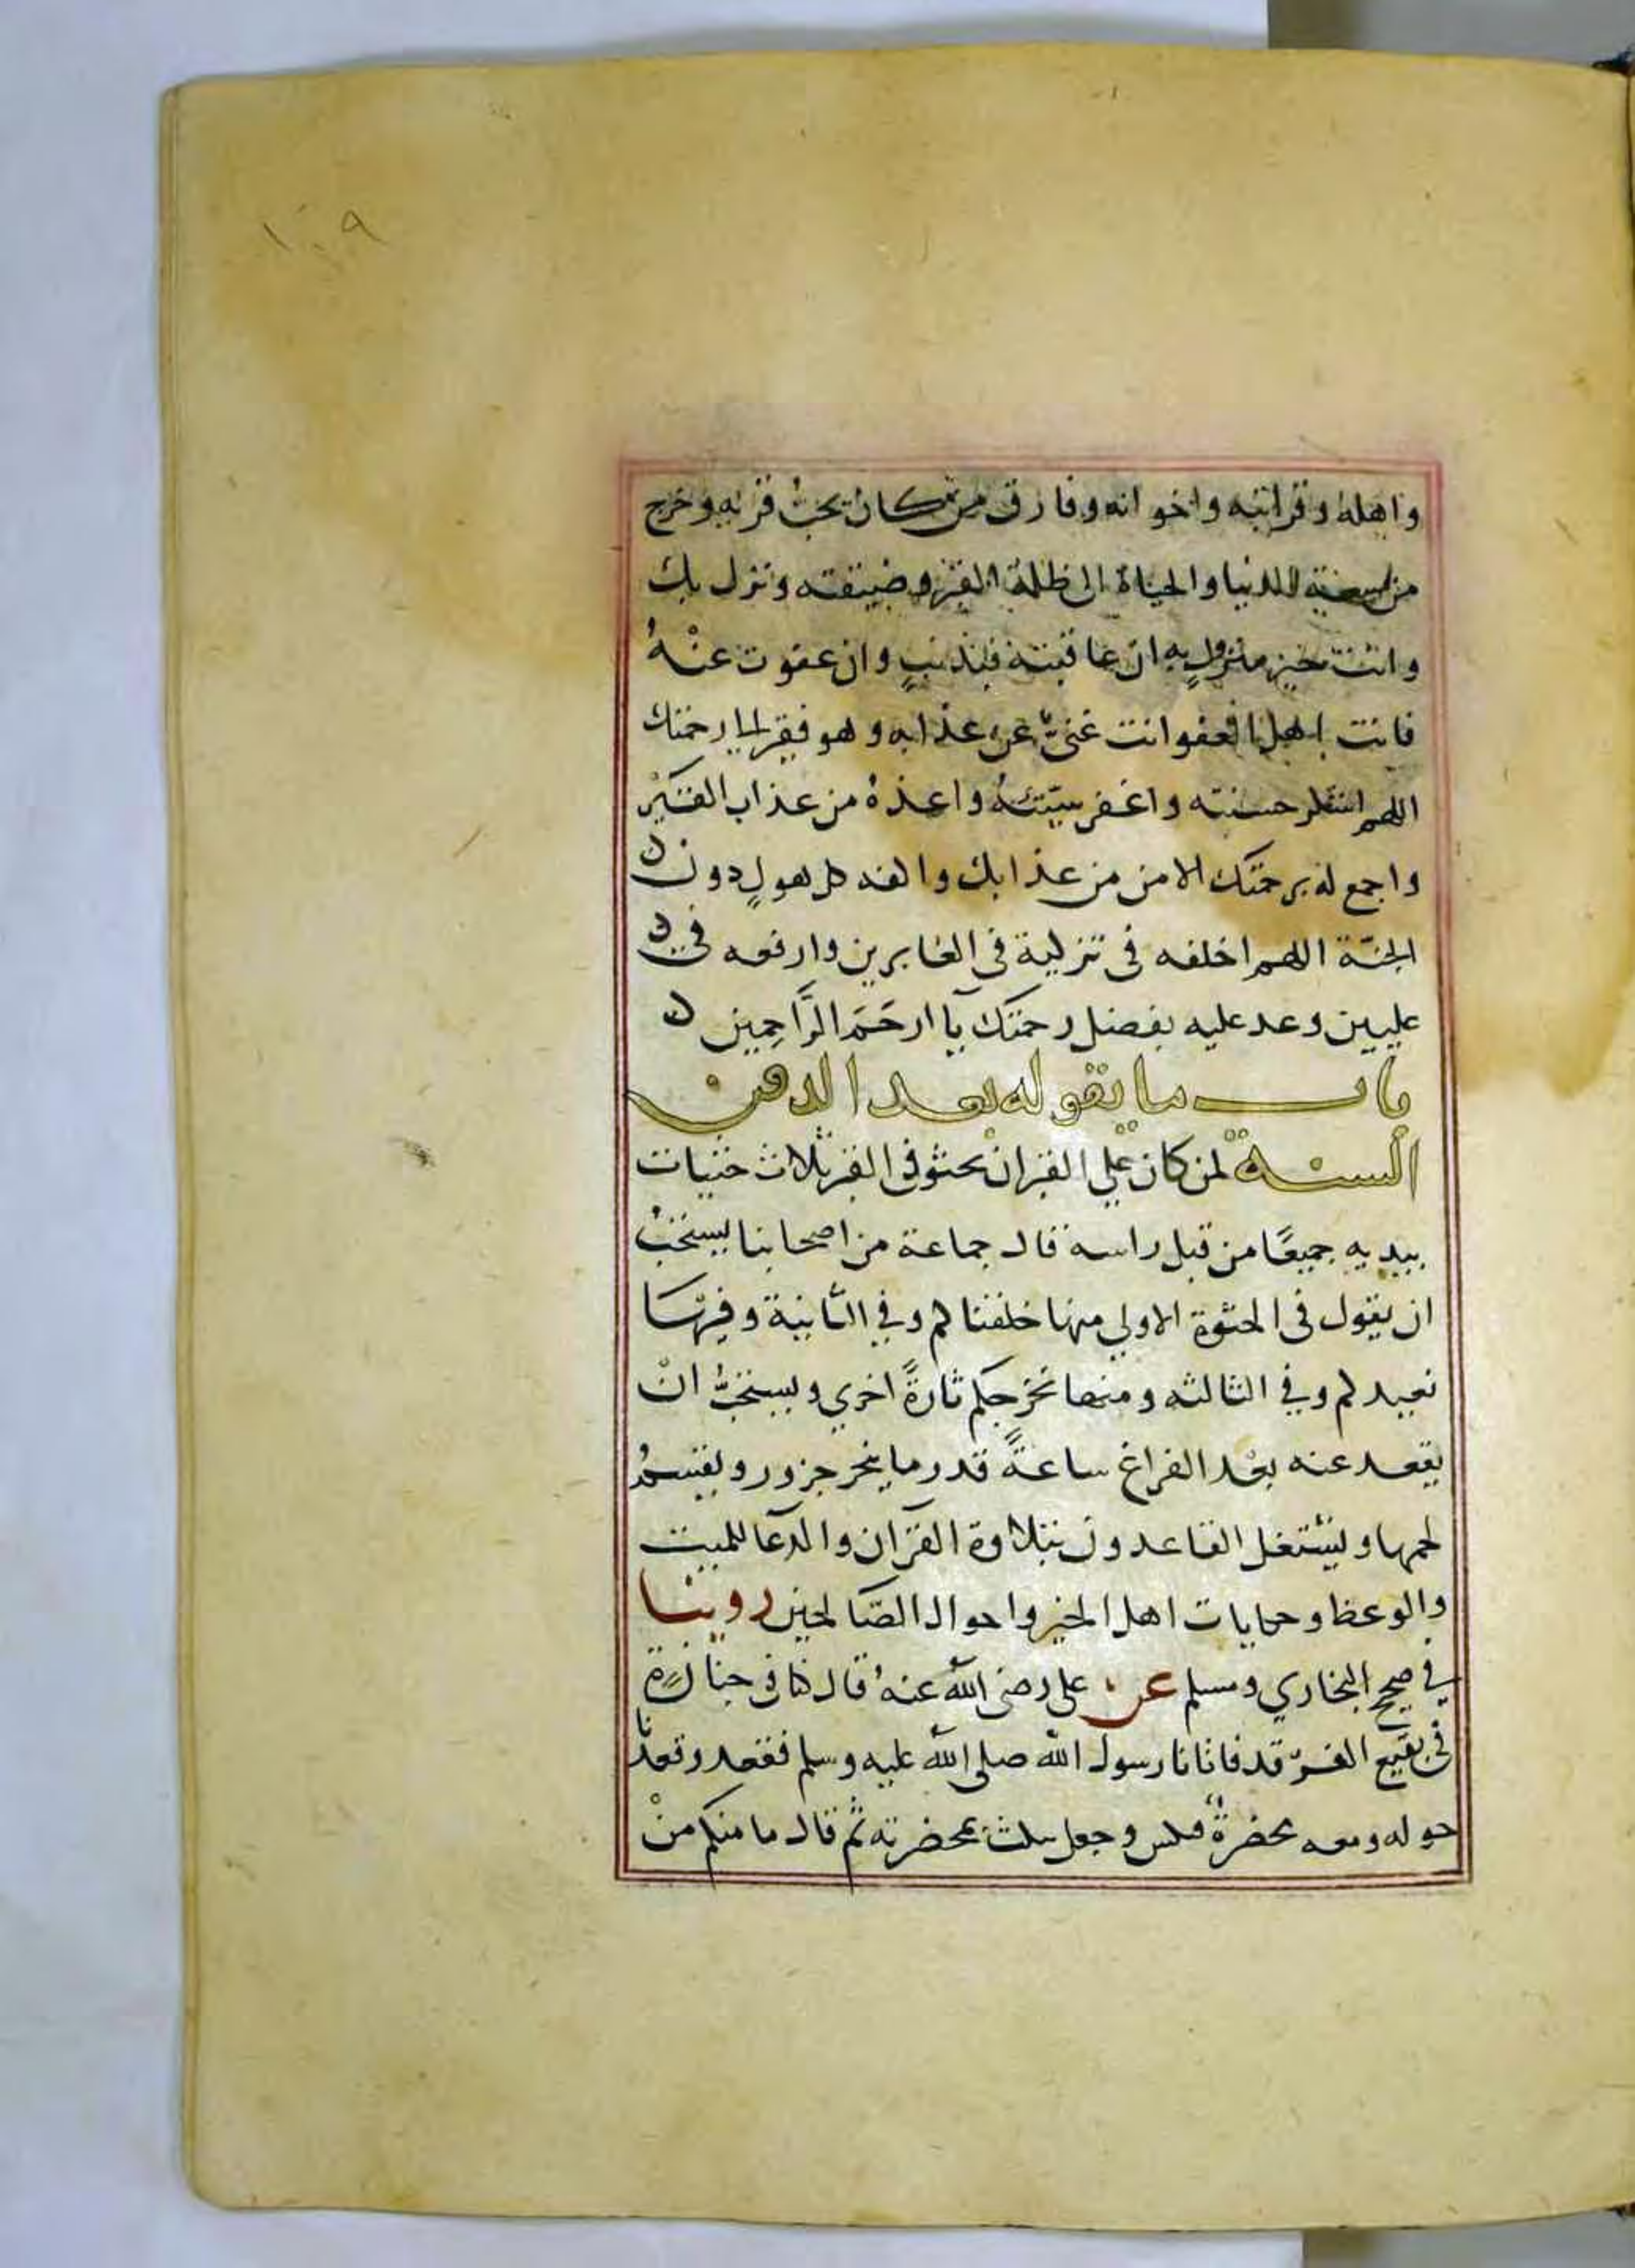 ١٠٩
واهله وقرابته واخوانه وفارق من كان يحبُّ قربه وخرج
من سعة الدنيا والحياة الى ظلمة القبر وضيقته ونزل بك
وانت خير منزولٍ به ان عاقبته فبذنبٍ وان عفوت عنْهُ
فانت اهل العفو انت غنيٌّ عن عذابه وهو فقير الى رحمتك
اللهم حسنته واغفر سيّئتهُ واعذهُ من عذاب القبر
واجمع له برحمتك الامن من عذابك والفه كل هولٍ دون
الجنّة اللهم اخلفه فى تزكية فى الغابرين وارفعه في
عليين وعد عليه بفضل رحمتك يآ ارحَمَ الرَّاحِمِين
باب ما يقوله بعد الدفن
السنة لمن كان على القبر ان يحثو فى القبر ثلاث حثيات
بيديه جميعًا من قبل راسه قال جماعة من اصحابنا يستحبُّ
ان يقول فى الحثوة الاولي منها خلقناكم وفي الثانية وفيها
نعيدكم وفي الثالثه ومنها نخرجكم تارةً اخري ويستحبُّ انْ
يقعد عنه بعْد الفراغ ساعةً قدر ما ينحر جزور ويقتسمُ
لحمها ويشتغل القاعدون بتلاوة القرآن والدعآ للميت
والوعظ وحكايات اهل الخير واحوال الصّالحين روينا
في صحيح البخاري ومسلم عن على رضى الله عنهُ قال كنا فى جنازة
فى بقيع الغرّقد فاتانا رسول الله صلى الله عليه وسلم فقعد وقعدْنا
حوله ومعه مخضرةٌ فنكس وجعل ينكث بمخضرته ثم قال ما منكم منْ